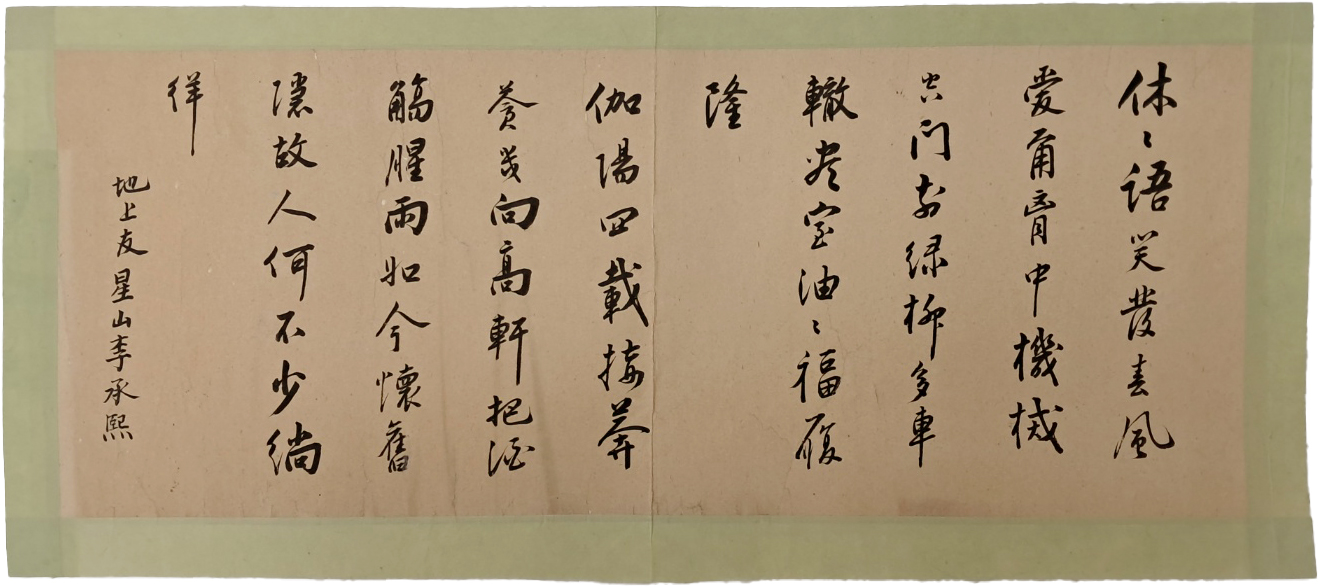 休〻語笑發春風
愛爾胷中機械
空門前綠柳多車
轍尽室油〻福履
隆
伽陽四載接莽
蒼幾向高軒把酒
觴腥雨如今懷舊
隱故人何不少徜
徉
地上友星山李承熙